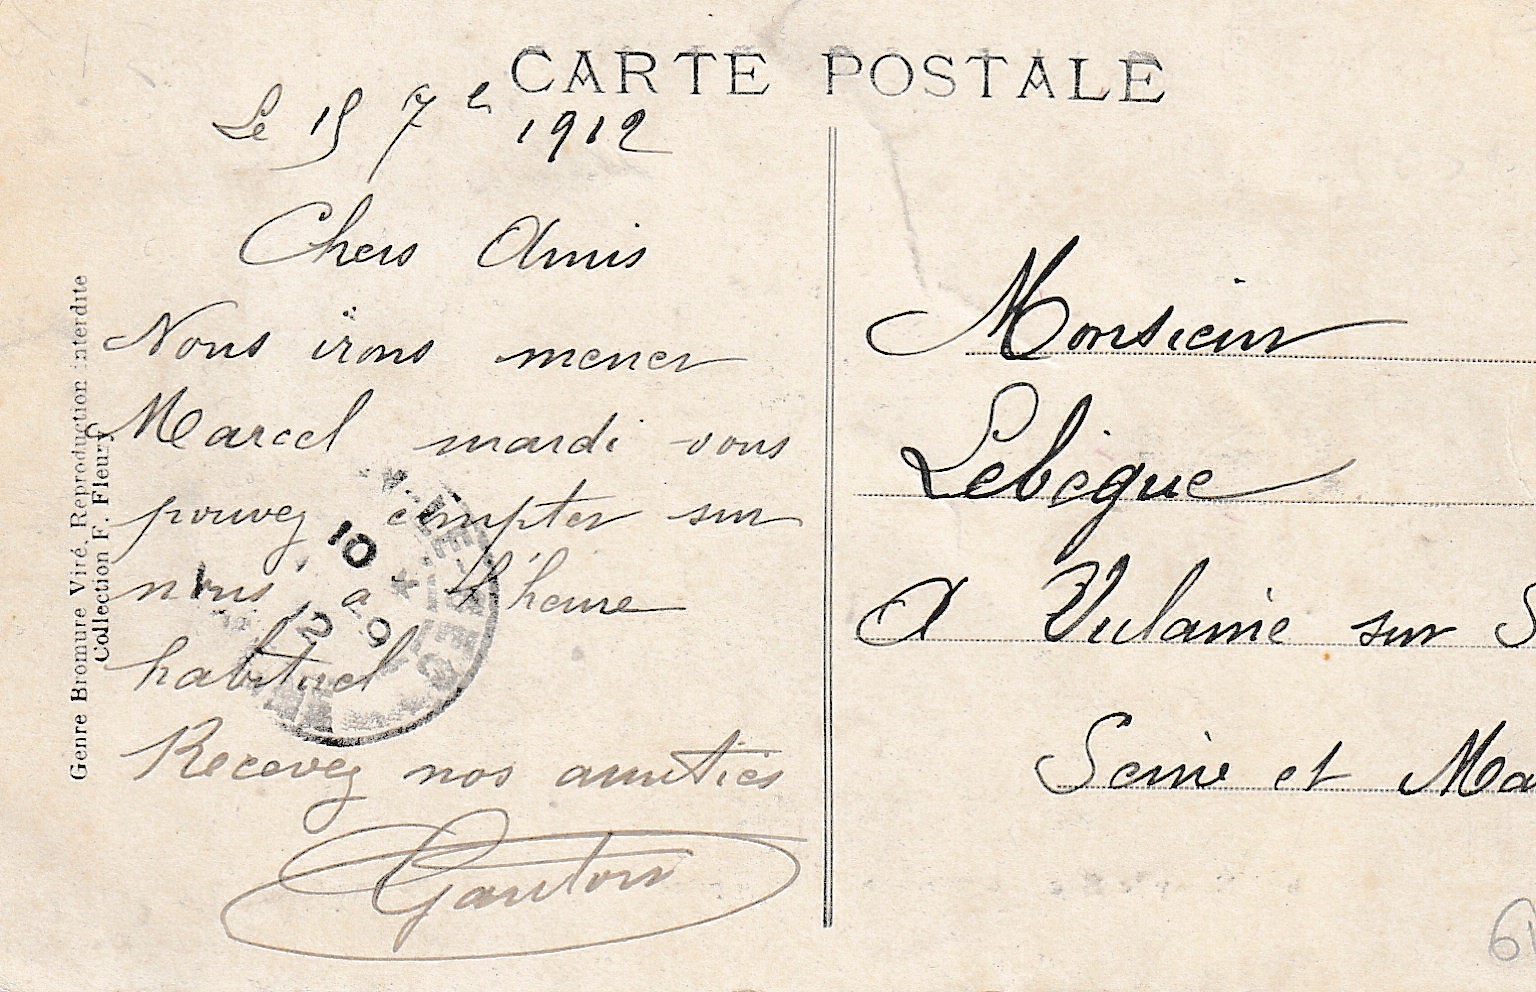 CARTE POSTALE
Le 15 7e 1912
Chers Amis
Nous irons mener
Marcel mardi vous
pouvez compter sur
nous a l'heure
habituel
Recevez nos amitiés
Monsieur
Lebègue
A Vulaine sur S
Seine et Ma
Genre Bromure Viré, Reproduction interdite
Collection F. Fleury
10 *
12 9
61